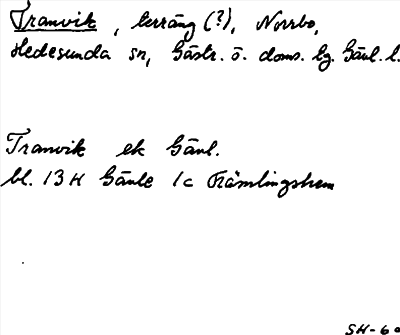 Tranvik, terräng (?), Norrbo,
Hedesunda sn, Gästr. ö. doms. lg. Gävl. l.
Tranvik ek Gävl.
bl. 13 H Gävle 1c Främlingshem
SH-60